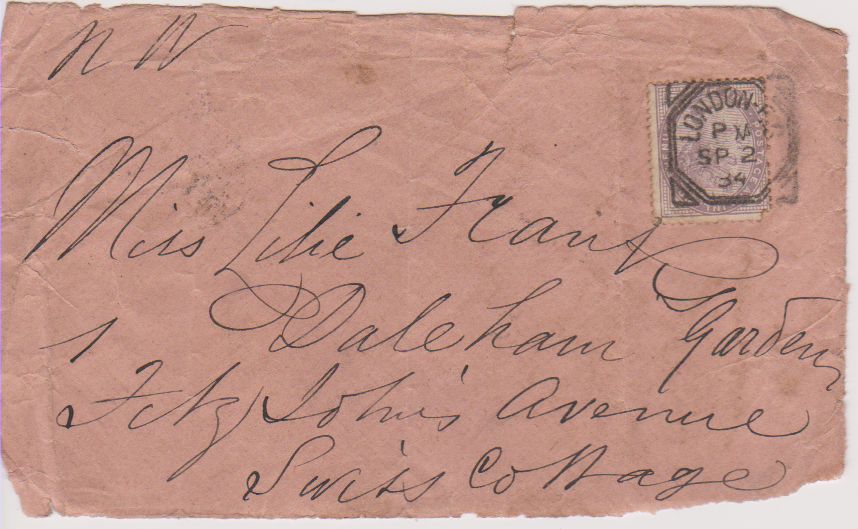 N W
LONDON
PM
SP 2
84
POSTAGE
Miss Lilie Frank
1 Daleham Gardens
Fitz John's Avenue
Swiss Cottage